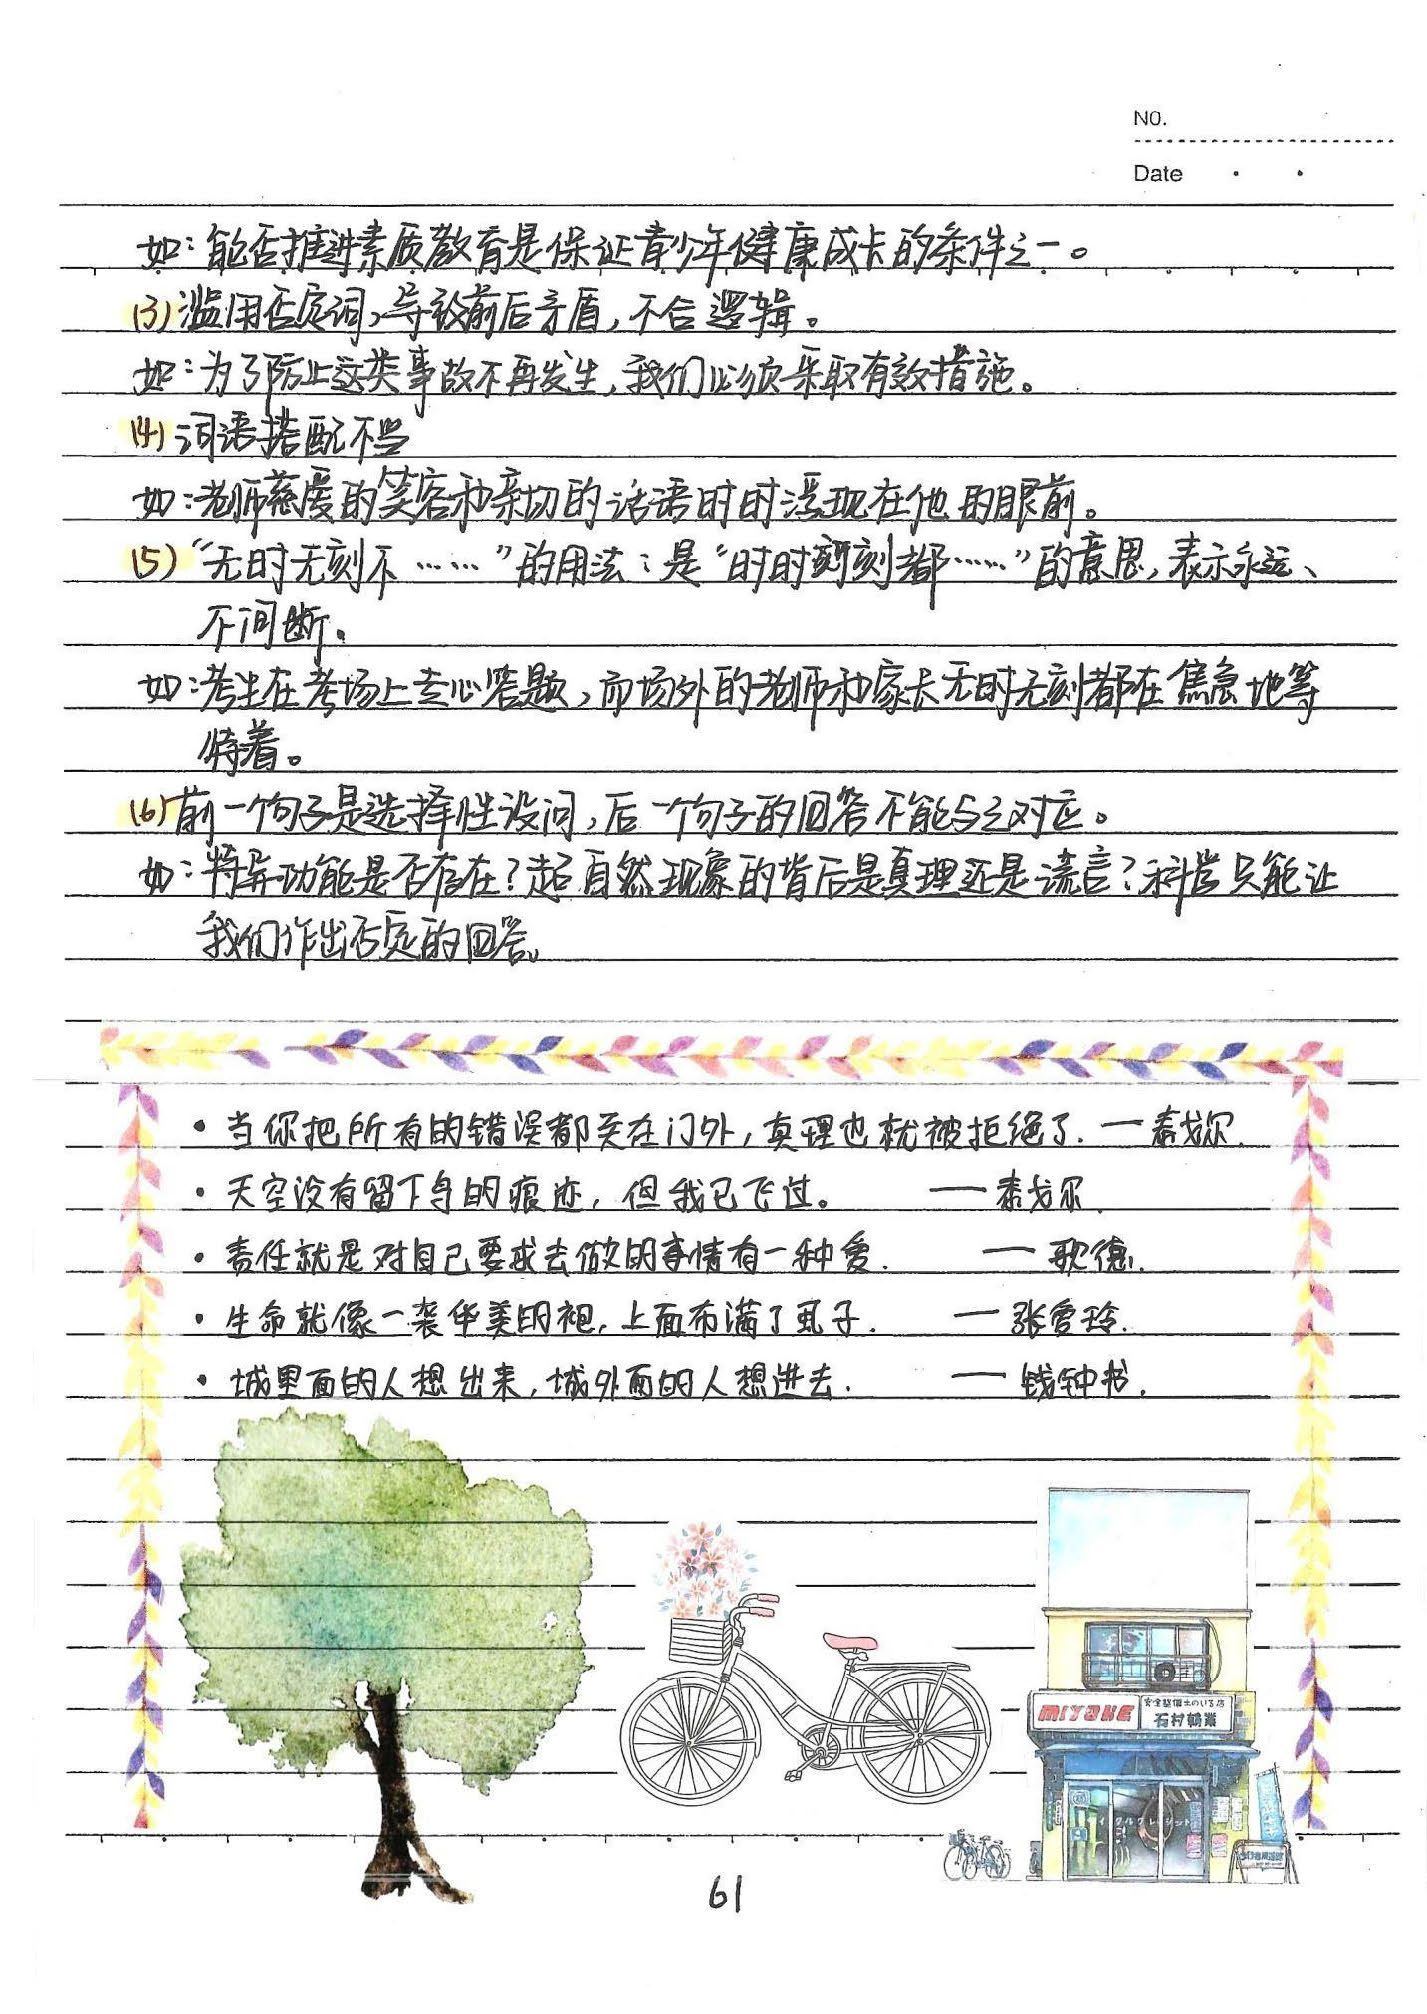 NO.
Date
如：能否推进素质教育是保证青少年健康成长的条件之一。
(3) 滥用否定词，导致前后矛盾，不合逻辑。
如：为了防止这类事故不再发生，我们必须采取有效措施。
(4) 词语搭配不当
如：老师慈爱的笑容和亲切的话语时时浮现在他的眼前。
(5) “无时无刻不……”的用法：是“时时刻刻都……”的意思，表示永远、
不间断。
如：考生在考场上专心答题，而场外的老师和家长无时无刻都在焦急地等
待着。
(6) 前一个句子是选择性设问，后一个句子的回答不能与之对应。
如：特异功能是否存在？超自然现象的背后是真理还是谎言？科学只能让
我们作出否定的回答。
·当你把所有的错误都关在门外，真理也就被拒绝了. 一泰戈尔.
·天空没有留下鸟的痕迹，但我已飞过。 一泰戈尔.
·责任就是对自己要求去做的事情有一种爱. 一歌德.
·生命就像一袭华美的袍，上面布满了虱子. 一张爱玲.
·城里面的人想出来，城外面的人想进去. 一钱钟书.
MIYAKE
安全整備士のいる店
石村輪業
61